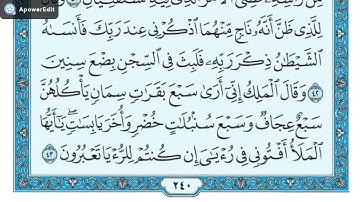 ApowerEdit
لِلَّذِى ظَنَّ أَنَّهُۥ نَاجٍ مِّنْهُمَا ٱذْكُرْنِى عِندَ رَبِّكَ فَأَنسَىٰهُ
ٱلشَّيْطَٰنُ ذِكْرَ رَبِّهِۦ فَلَبِثَ فِى ٱلسِّجْنِ بِضْعَ سِنِينَ
٤٢ وَقَالَ ٱلْمَلِكُ إِنِّىٓ أَرَىٰ سَبْعَ بَقَرَٰتٍ سِمَانٍ يَأْكُلُهُنَّ
سَبْعٌ عِجَافٌ وَسَبْعَ سُنۢبُلَٰتٍ خُضْرٍ وَأُخَرَ يَابِسَٰتٍ يَٰٓأَيُّهَا
ٱلْمَلَأُ أَفْتُونِى فِى رُءْيَٰىَ إِن كُنتُمْ لِلرُّءْيَا تَعْبُرُونَ ٤٣
٢٤٠